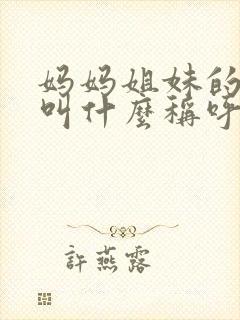 妈妈姐妹的
叫什麼稱呼
許燕露